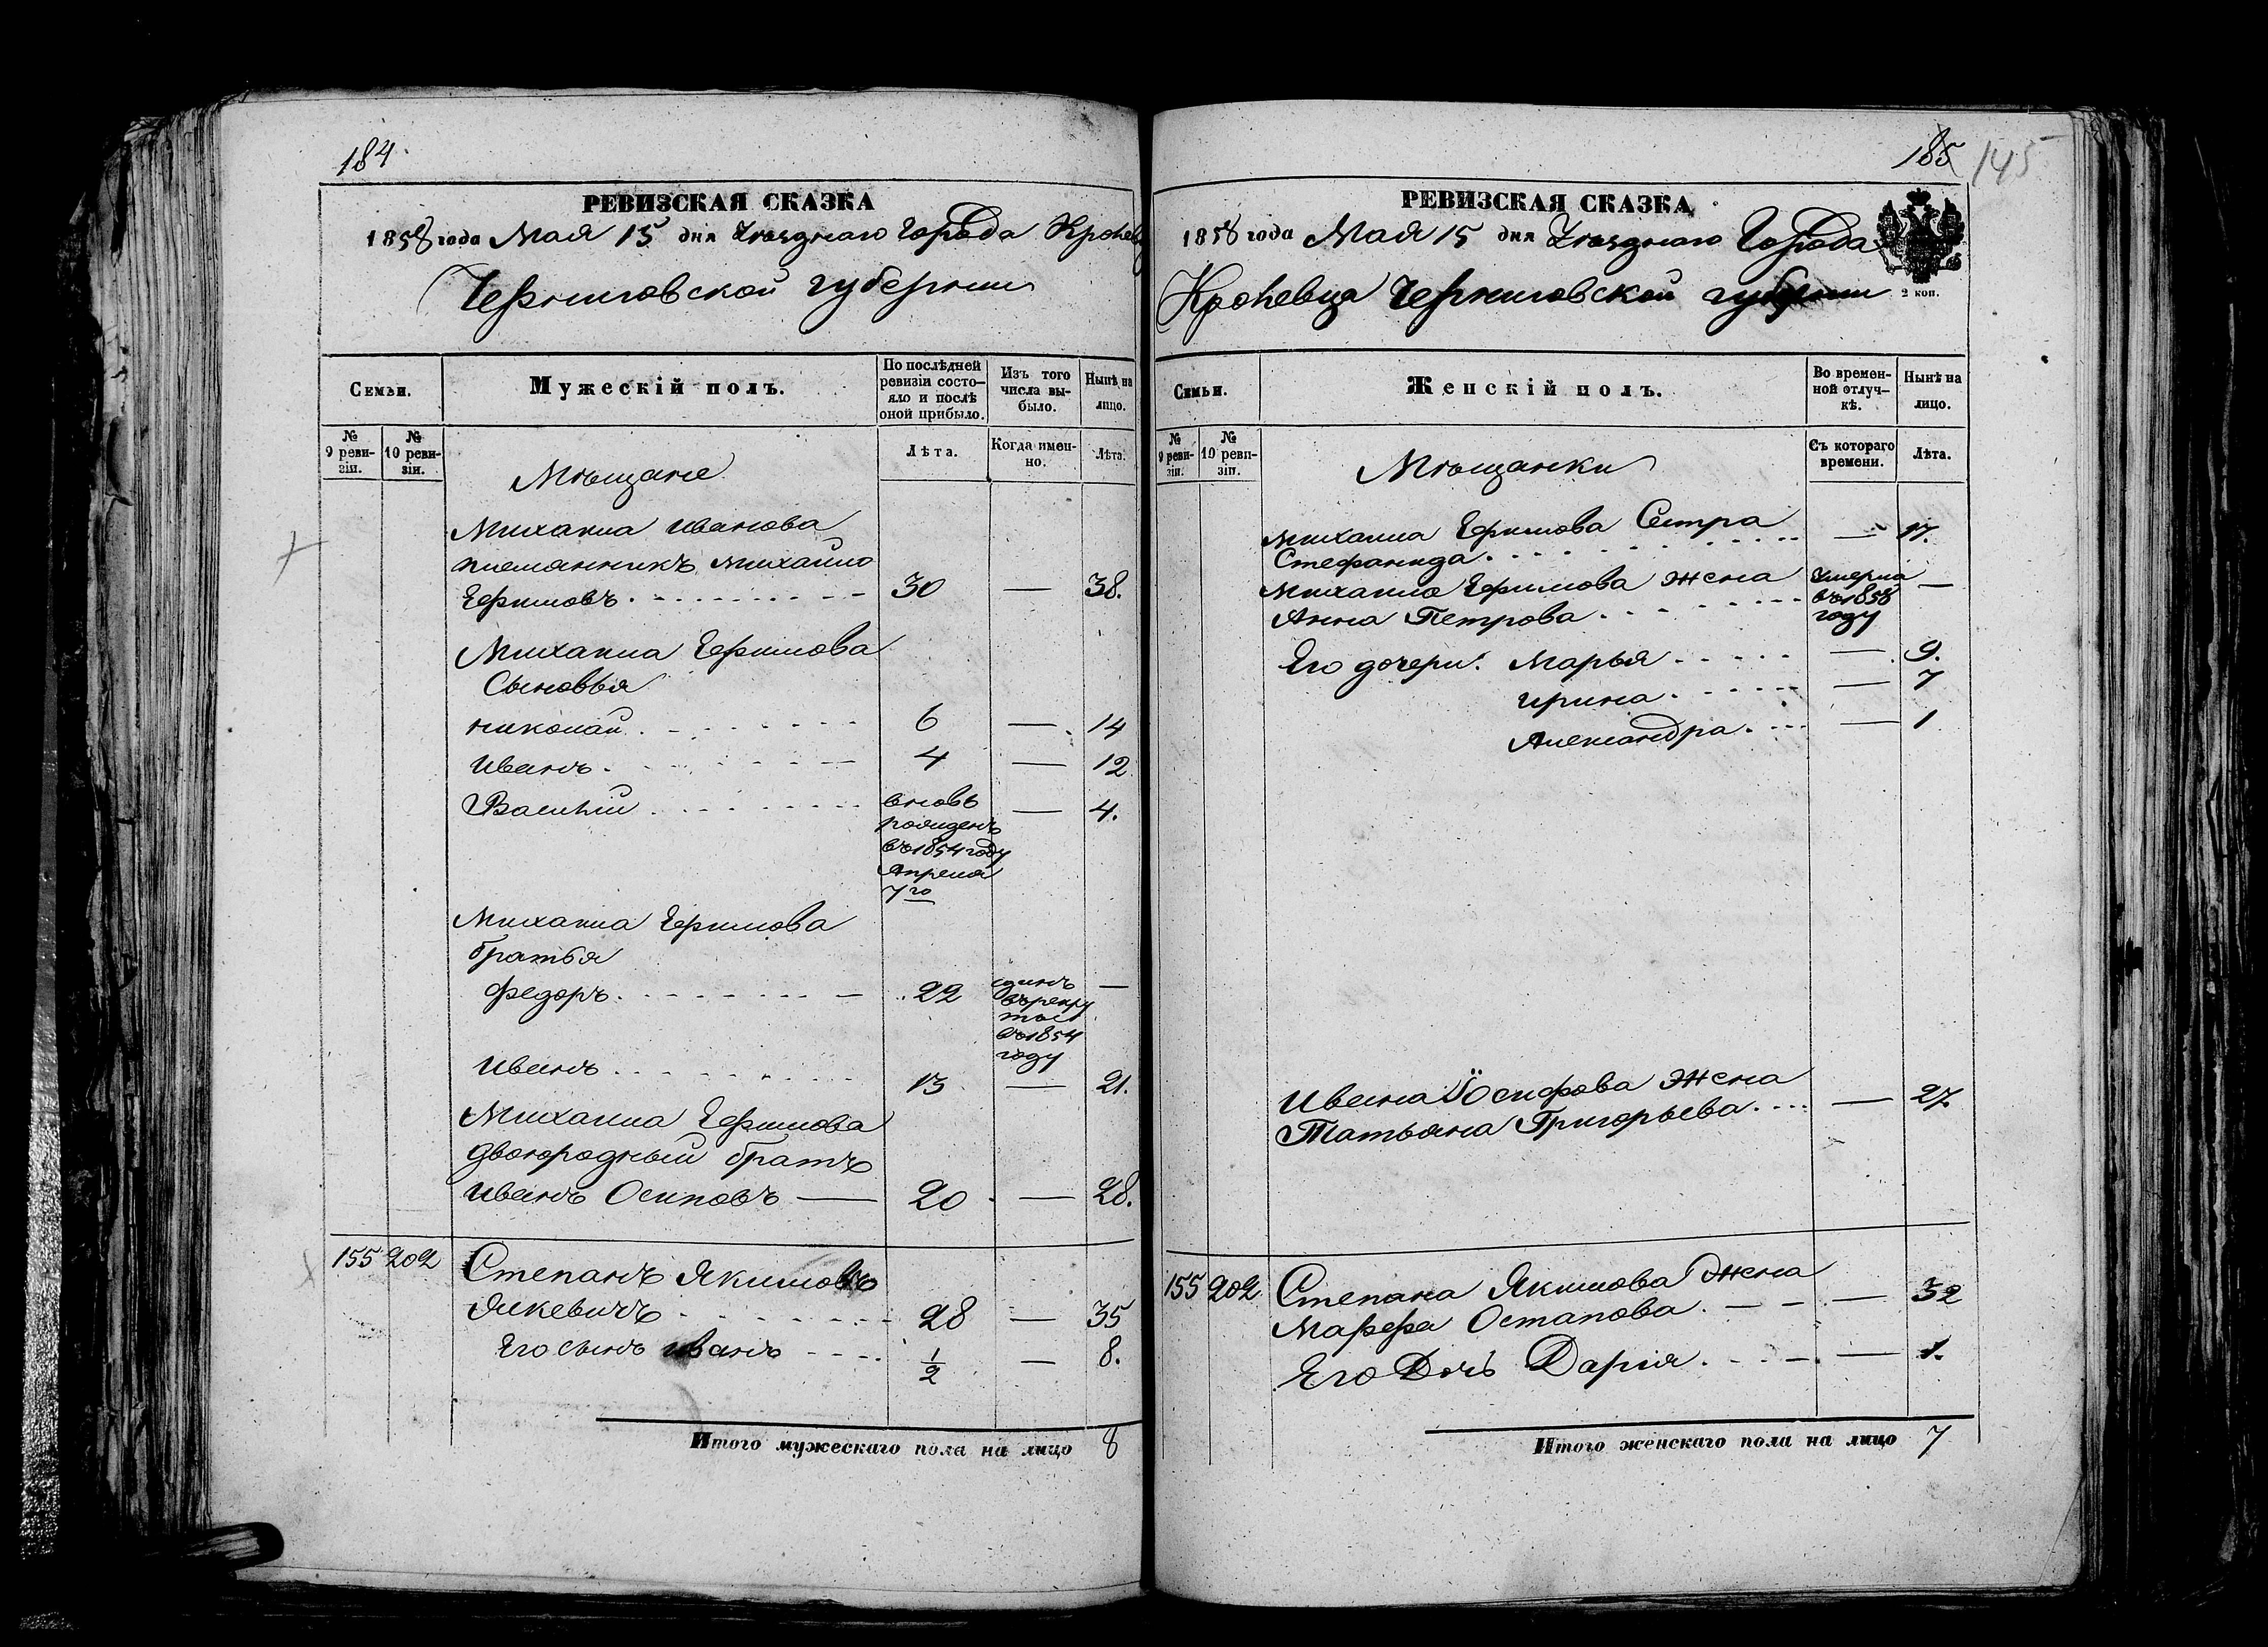 184.
РЕВИЗСКАЯ СКАЗКА
1858 года Мая 15 дня Уѣзднаго Города Кролев
Черниговской губерніи
Семьи.
Мужескій полъ.
По послѣдней ревизіи состо-
яло и послѣ оной прибыло.
Изъ того числа вы-
было.
Нынѣ на лицо.
№ 9 реви-
зіи.
№ 10 реви-
зіи.
Лѣта.
Когда имен-
но.
Лѣта.
Мѣщане
Михаила Иванова
племянникъ Михайло
Ефимовъ. 30 — 38.
Михаила Ефимова
Сыновья
Николай. 6 — 14
Иванъ. 4 — 12
Василій вновь — 4.
рожденъ
въ 1854 году
Апреля
7го
Михаила Ефимова
братья
Федоръ. 22 сданъ —
въ рекру
ты
въ 1854
году
Иванъ 13 — 21.
Михаила Ефимова
двоюродный братъ
Иванъ Осиповъ — 20 — 28.
155 202 Степанъ Якимовъ
28 — 35
Его сынъ Иванъ 1/2 — 8.
Итого мужескаго пола на лицо 8
185 145
РЕВИЗСКАЯ СКАЗКА
1858 года Мая 15 дня Уѣзднаго Города
Кролевца Черниговской губерніи
2 коп.
Семьи.
Женскій полъ.
Во времен-
ной отлуч-
кѣ.
Нынѣ на лицо.
№ 9 реви-
зіи.
№ 10 реви-
зіи.
Съ котораго времени.
Лѣта.
Мѣщанки
Михаила Ефимова Сестра
Стефанида. — 17.
Михаила Ефимова жена Умерла —
Анна Петрова. въ 1858
году
Его дочери: Марья — 9.
Ирина — 7
Александра. — 1
Ивана Іосифова жена
Татьяна Григорьева. — 27
155 202 Степана Якимова жена
Марфа Остапова. — 32
Его Дочь Дарія. — 1.
Итого женскаго пола на лицо 7